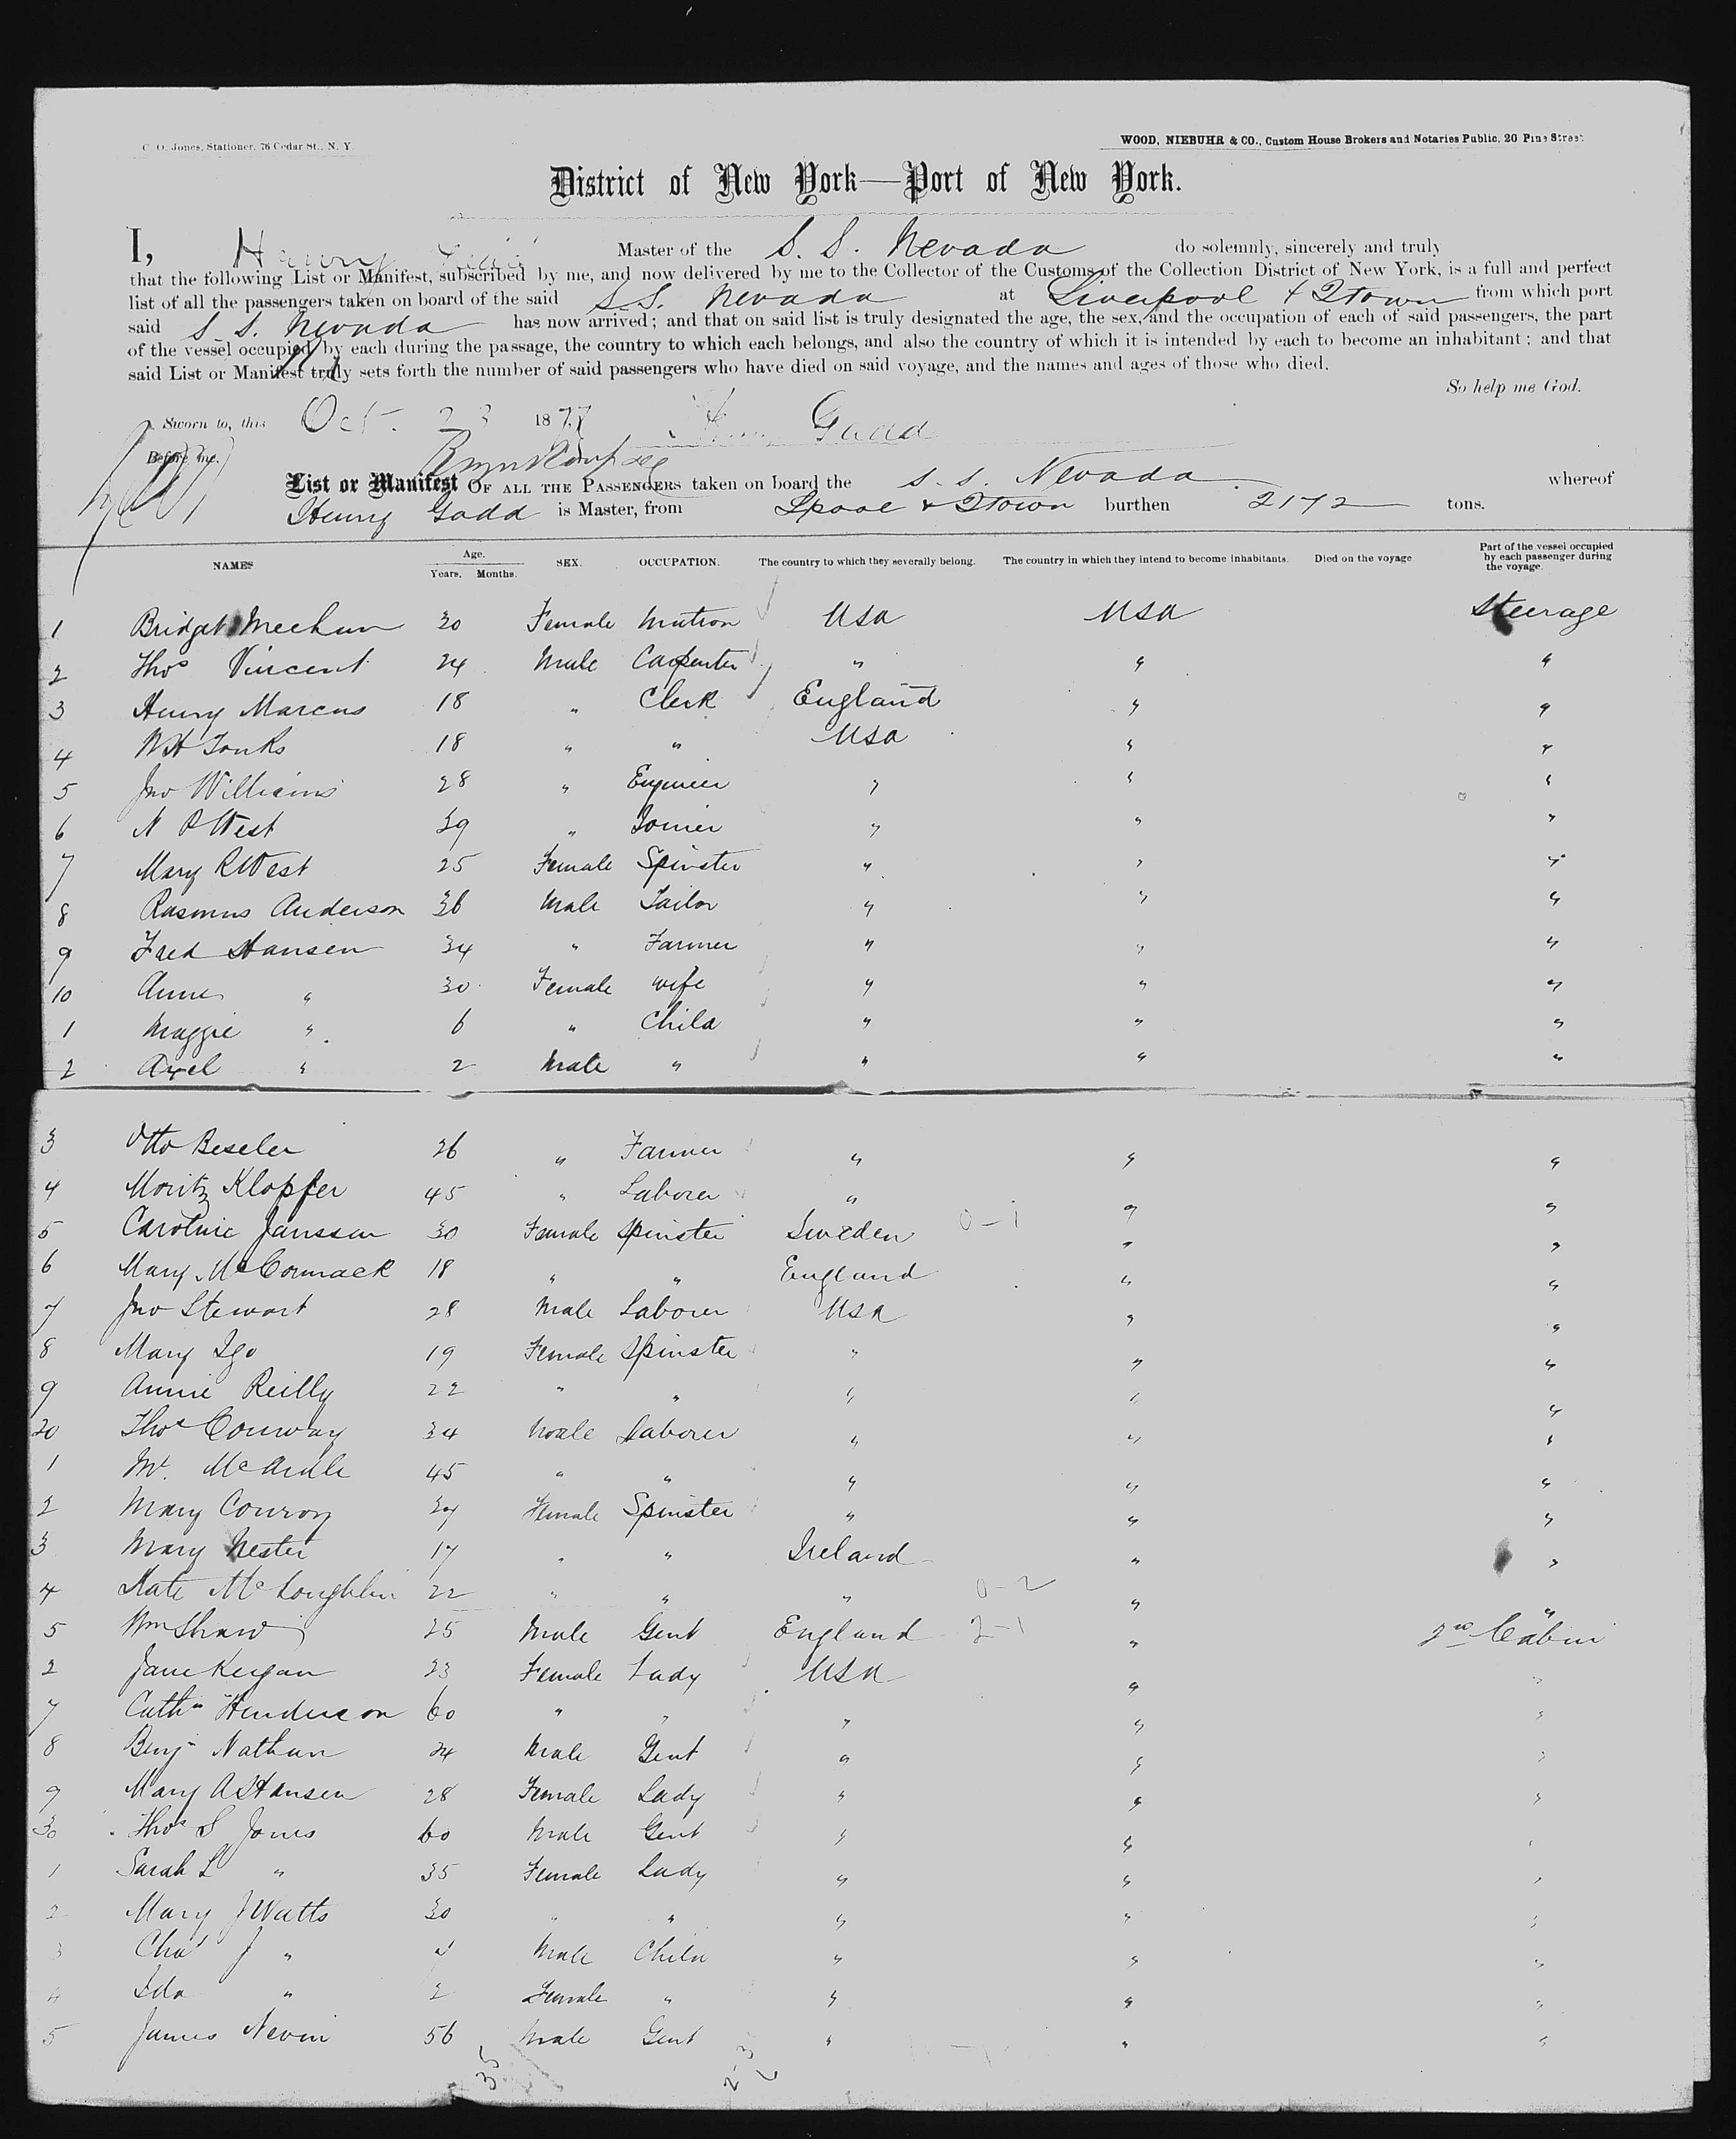 C. O. Jones, Stationer, 76 Cedar St., N. Y.
WOOD, NIEBUHR & CO., Custom House Brokers and Notaries Public, 20 Pine Street
District of New York—Port of New York.
I, Henry Master of the S. S. Nevada do solemnly, sincerely and truly
that the following List or Manifest, subscribed by me, and now delivered by me to the Collector of the Customs of the Collection District of New York, is a full and perfect
list of all the passengers taken on board of the said S S. Nevada at Liverpool & Qtown from which port
said S S. Nevada has now arrived; and that on said list is truly designated the age, the sex, and the occupation of each of said passengers, the part
of the vessel occupied by each during the passage, the country to which each belongs, and also the country of which it is intended by each to become an inhabitant; and that
said List or Manifest truly sets forth the number of said passengers who have died on said voyage, and the names and ages of those who died.
So help me God.
Sworn to, this Oct. 23 1877 Gadd
Before me,
List or Manifest OF ALL THE PASSENGERS taken on board the S. S. Nevada whereof
Henry Gadd is Master, from Lpool & Qtown burthen 2172 tons.
NAMES Age. Years. Months. SEX. OCCUPATION. The country to which they severally belong. The country in which they intend to become inhabitants. Died on the voyage Part of the vessel occupied by each passenger during the voyage.
1 Bridget Meehan 30 Female Matron USA USA Steerage
2 Thos Vincent 24 Male Carpenter " " "
3 Henry Marcus 18 " Clerk England " "
4 WH Tonks 18 " " USA " "
5 Jno Williams 28 " Engineer " " "
6 N P West 39 " Joiner " " "
7 Mary R West 25 Female Spinster " " "
8 Rasmus Anderson 36 Male Tailor " " "
9 Fred Hansen 34 " Farmer " " "
10 Anne " 30 Female wife " " "
1 Maggie " 6 " Child " " "
2 Axel " 2 Male " " " "
3 Otto Beseler 26 " Farmer " " "
4 Moritz Klopfer 45 " Laborer " " "
5 Caroline Janssen 30 Female Spinster Sweden 0-1 " "
6 Mary McCormack 18 " " England " "
7 Jno Stewart 28 Male Laborer USA " "
8 Mary Igo 19 Female Spinster " " "
9 Annie Reilly 22 " " " " "
20 Thos Conway 34 Male Laborer " " "
1 McArdle 45 " " " " "
2 Mary Conroy Female Spinster " " "
3 Mary Nester 17 " " Ireland " "
4 Kate McLoughlin 22 " " " 0-2 " "
5 Wm Shaw 25 Male Gent England 2-1 " 2nd Cabin
2 Jane Keegan 23 Female Lady USA " "
7 Cathn Henderson 60 " " " " "
8 Benj Nathan 24 Male Gent " " "
9 Mary A Hansen 28 Female Lady " " "
30 Thos S Jones 60 Male Gent " " "
1 Sarah L " 35 Female Lady " " "
2 Mary J Watts 30 " " " " "
3 Chas J " Male Child " " "
4 Ida " 2 Female " " " "
5 James Nevin 56 Male Gent " " "
35